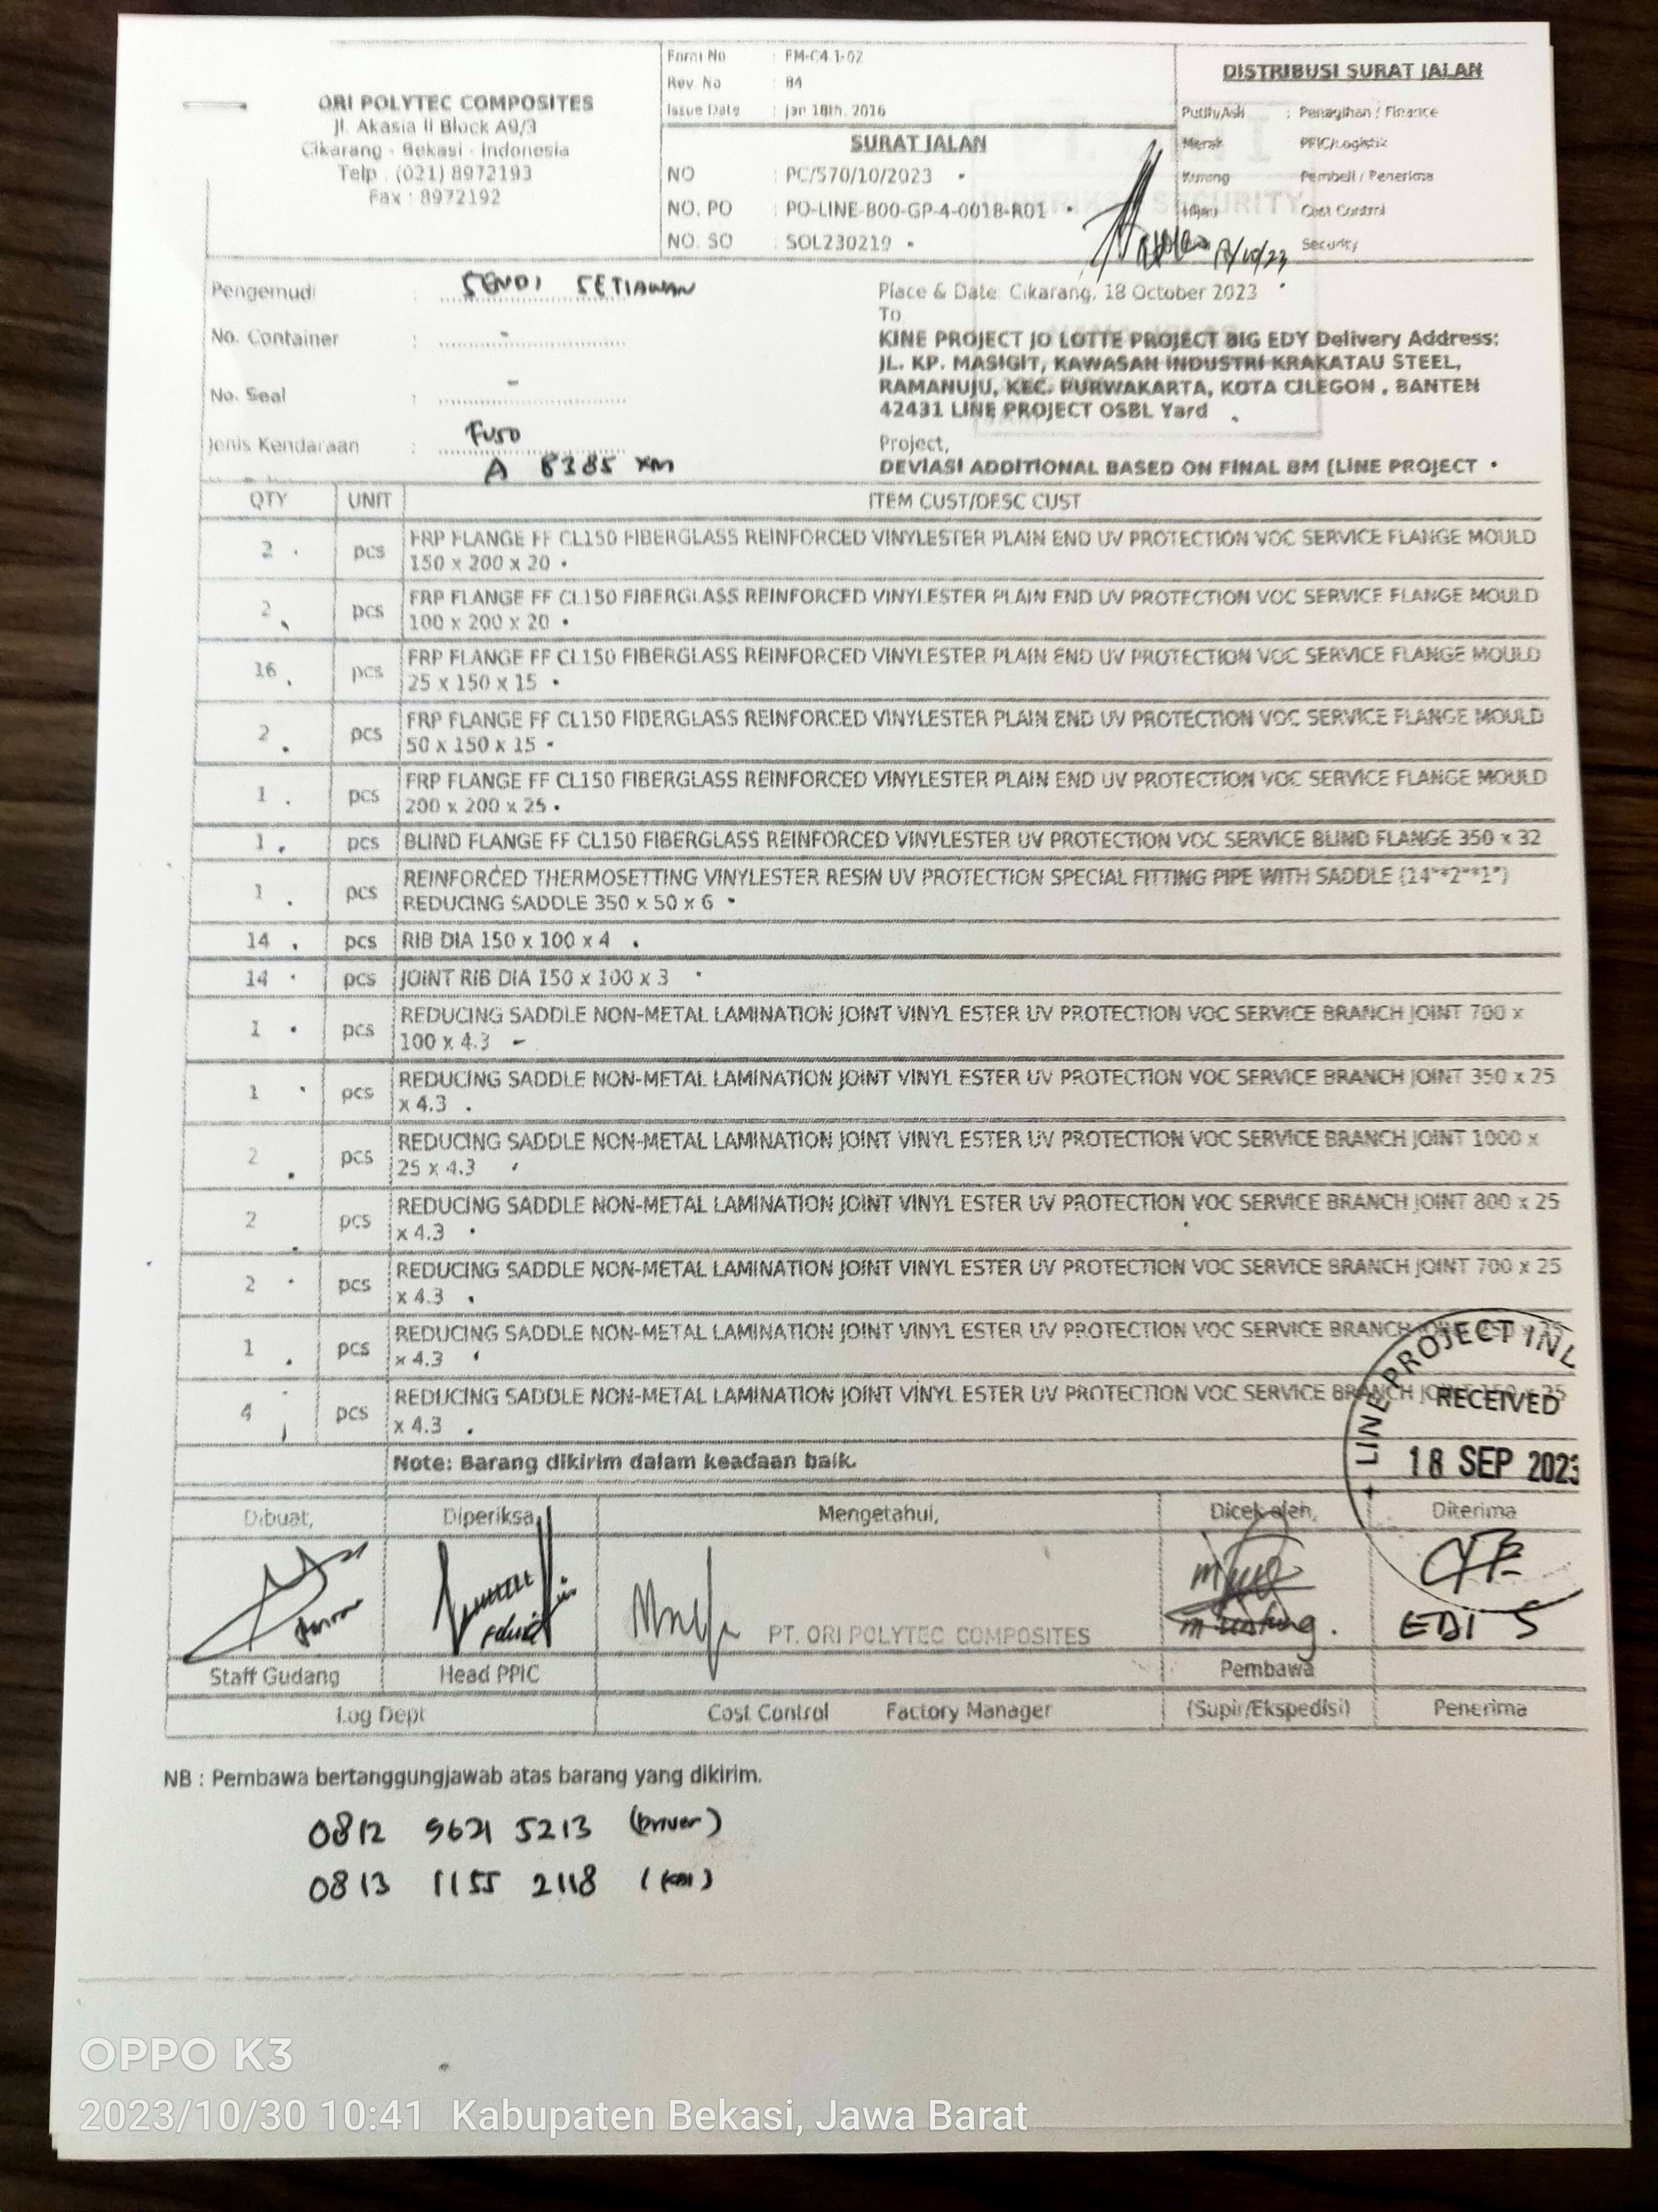 ORI POLYTEC COMPOSITES
Jl. Akasia II Block A9/3
Cikarang - Bekasi - Indonesia
Telp : (021) 8972193
Fax : 8972192
Form No : FM-C4.1-02
Rev. No : 04
Issue Date : Jan 18th, 2016
SURAT JALAN
NO : PC/570/10/2023
NO. PO : PO-LINE-800-GP-4-0018-R01
NO. SO : SOL230219
DISTRIBUSI SURAT JALAN
Putih/Asli : Penagihan / Finance
Merah PPIC/Logistik
Kuning Pembeli / Penerima
Hijau Cost Control
Security
Pengemudi : SENDI SETIAWAN
No. Container : -
No. Seal : -
Jenis Kendaraan : FUSO
A 8385 XM
Place & Date: Cikarang, 18 October 2023
To
KINE PROJECT JO LOTTE PROJECT BIG EDY Delivery Address:
JL. KP. MASIGIT, KAWASAN INDUSTRI KRAKATAU STEEL,
RAMANUJU, KEC. PURWAKARTA, KOTA CILEGON , BANTEN
42431 LINE PROJECT OSBL Yard
Project,
DEVIASI ADDITIONAL BASED ON FINAL BM (LINE PROJECT
QTY UNIT ITEM CUST/DESC CUST
2 pcs FRP FLANGE FF CL150 FIBERGLASS REINFORCED VINYLESTER PLAIN END UV PROTECTION VOC SERVICE FLANGE MOULD
150 x 200 x 20
2 pcs FRP FLANGE FF CL150 FIBERGLASS REINFORCED VINYLESTER PLAIN END UV PROTECTION VOC SERVICE FLANGE MOULD
100 x 200 x 20
16 pcs FRP FLANGE FF CL150 FIBERGLASS REINFORCED VINYLESTER PLAIN END UV PROTECTION VOC SERVICE FLANGE MOULD
25 x 150 x 15
2 pcs FRP FLANGE FF CL150 FIBERGLASS REINFORCED VINYLESTER PLAIN END UV PROTECTION VOC SERVICE FLANGE MOULD
50 x 150 x 15
1 pcs FRP FLANGE FF CL150 FIBERGLASS REINFORCED VINYLESTER PLAIN END UV PROTECTION VOC SERVICE FLANGE MOULD
200 x 200 x 25
1 pcs BLIND FLANGE FF CL150 FIBERGLASS REINFORCED VINYLESTER UV PROTECTION VOC SERVICE BLIND FLANGE 350 x 32
1 pcs REINFORCED THERMOSETTING VINYLESTER RESIN UV PROTECTION SPECIAL FITTING PIPE WITH SADDLE (14"*2"*1")
REDUCING SADDLE 350 x 50 x 6
14 pcs RIB DIA 150 x 100 x 4
14 pcs JOINT RIB DIA 150 x 100 x 3
1 pcs REDUCING SADDLE NON-METAL LAMINATION JOINT VINYL ESTER UV PROTECTION VOC SERVICE BRANCH JOINT 700 x
100 x 4.3
1 pcs REDUCING SADDLE NON-METAL LAMINATION JOINT VINYL ESTER UV PROTECTION VOC SERVICE BRANCH JOINT 350 x 25
x 4.3
2 pcs REDUCING SADDLE NON-METAL LAMINATION JOINT VINYL ESTER UV PROTECTION VOC SERVICE BRANCH JOINT 1000 x
25 x 4.3
2 pcs REDUCING SADDLE NON-METAL LAMINATION JOINT VINYL ESTER UV PROTECTION VOC SERVICE BRANCH JOINT 800 x 25
x 4.3
2 pcs REDUCING SADDLE NON-METAL LAMINATION JOINT VINYL ESTER UV PROTECTION VOC SERVICE BRANCH JOINT 700 x 25
x 4.3
1 pcs REDUCING SADDLE NON-METAL LAMINATION JOINT VINYL ESTER UV PROTECTION VOC SERVICE BRANCH
x 4.3
4 pcs REDUCING SADDLE NON-METAL LAMINATION JOINT VINYL ESTER UV PROTECTION VOC SERVICE BRANCH
x 4.3
LINE PROJECT INL
RECEIVED
18 SEP 2023
Note: Barang dikirim dalam keadaan baik.
Dibuat, Diperiksa, Mengetahui, Dicek oleh, Diterima
PT. ORI POLYTEC COMPOSITES
EDI S
Staff Gudang Head PPIC Pembawa
Log Dept Cost Control Factory Manager (Supir/Ekspedisi) Penerima
NB : Pembawa bertanggungjawab atas barang yang dikirim.
0812 9621 5213 (Driver)
0813 1155 2118
OPPO K3
2023/10/30 10:41 Kabupaten Bekasi, Jawa Barat